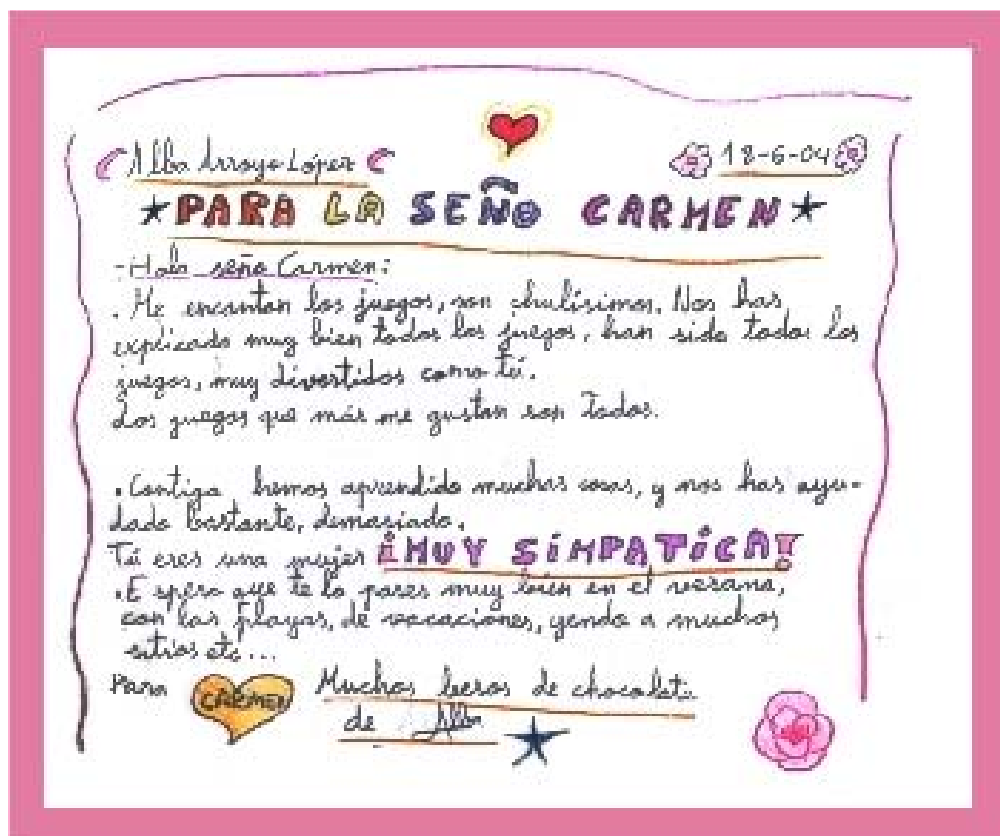 Alba Arroyo López 18-6-04
PARA LA SEÑO CARMEN
-Hola seño Carmen:
. Me encantan los juegos, son chulísimos. Nos has
explicado muy bien todos los juegos, han sido todos los
juegos, muy divertidos como tú.
Los juegos que más me gustan son Todos.
. Contigo hemos aprendido muchas cosas, y nos has ayu-
dado bastante, demasiado.
Tú eres una mujer ¡MUY SIMPATICA!
. Espero que te lo pases muy bien en el verano,
con las playas, de vacaciones, yendo a muchos
sitios etc...
Para CARMEN Muchos besos de chocolate
de Alba